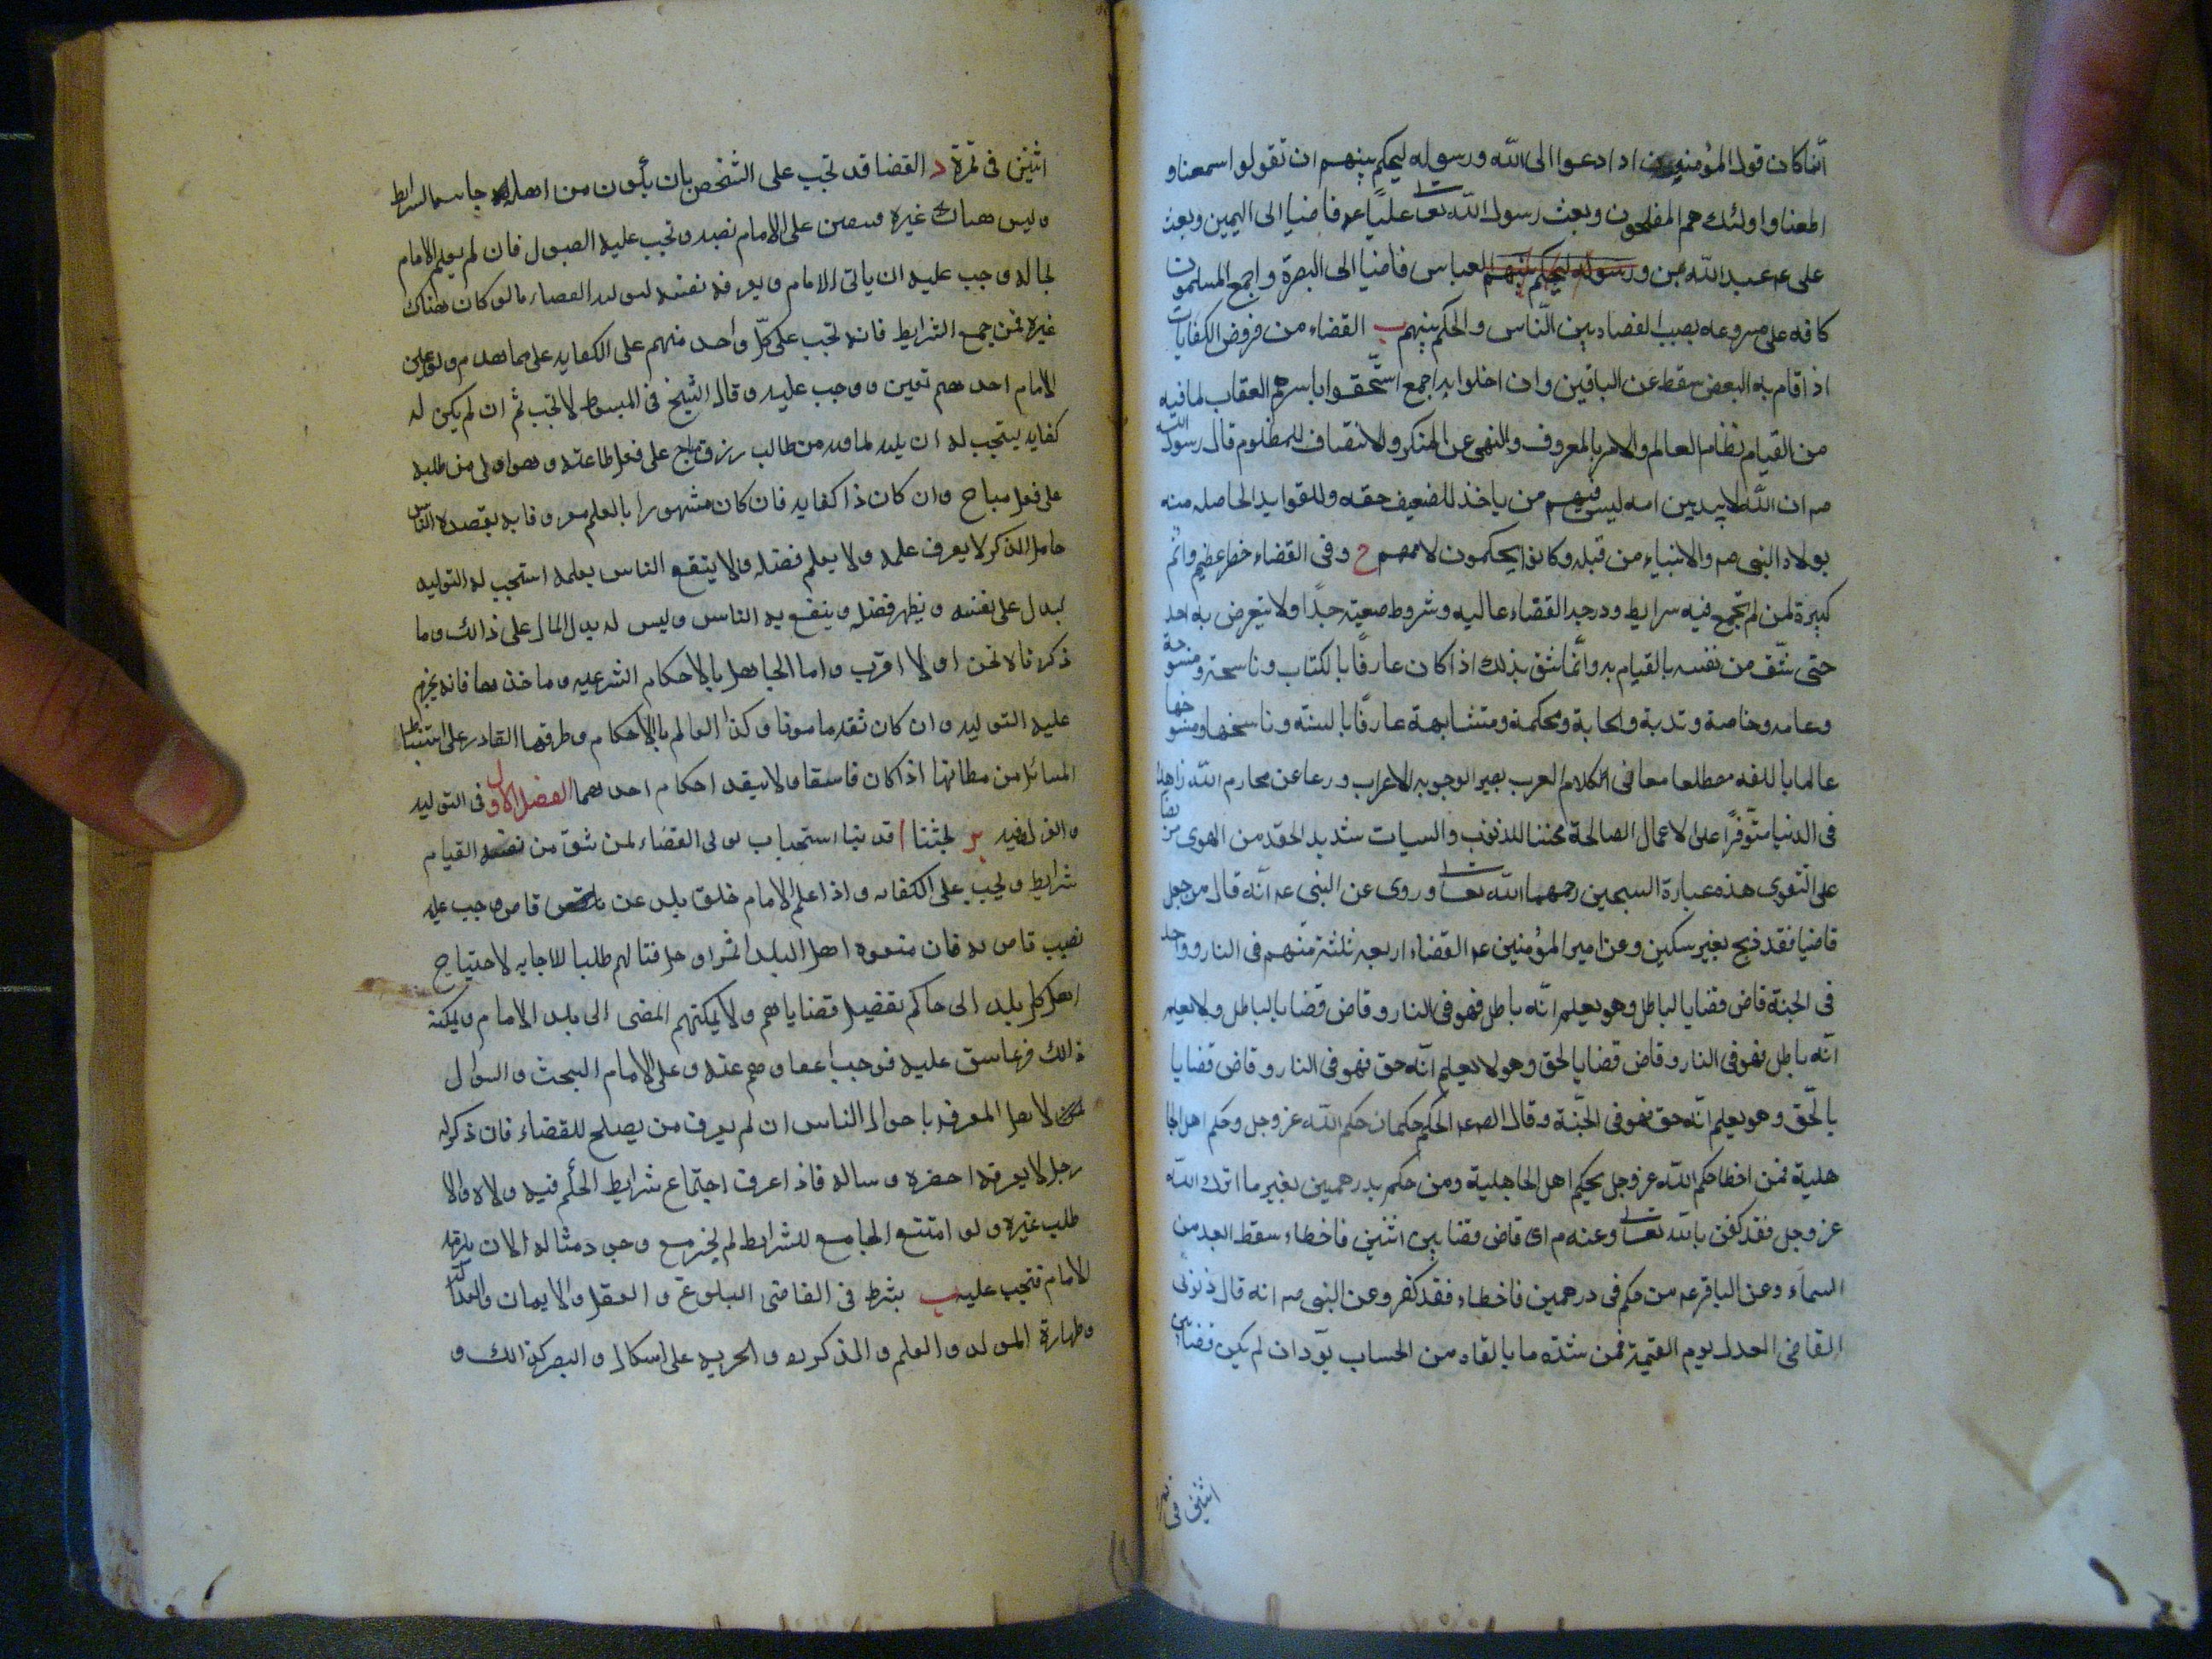 انّما كان قول المؤمنين اذا دعوا الى الله ورسوله ليحكم بينهم ان تقولوا سمعنا و
اطعنا واولئك هم المفلحون وبعث رسول الله عليّا عه قاضيا الى اليمن وبعث
على عه عبد الله بن العباس قاضيا الى البصرة واجمع المسلمون
كافه على مسروعه نصب القضاء بين النّاس والحكم بينهم ب القضاء من فروض الكفايات
اذا قام به البعض سقط عن الباقين وان اخلوا به اجمع استّحقوا باسرهم العقاب لما فيه
من القيام بنظام العالم والامر بالمعروف والنهى عن المنكر والانتصاف للمظلوم قال رسول الله
صه ان الله لا يدين امه ليس فيهم من ياخذ للضعيف حقه وللفوايد الحاصله منه
تولاه النبى صه والانبياء من قبله وكانوا يحكمون لاممهم ح وفى القضاء خطر عظيم واثم
كبيرة لمن لم تجمع فيه سرايط ودرجه القضاء عاليه وشروط صعبة جدًا ولا يتعرض به احد
حتى يثق من نفسه بالقيام به وانّما يثق بذلك اذا كان عارفًا بالكتاب وناسخه ومنسوخه
وعامه وخاصه وندبه وايجابة ومحكمة ومتشابهة عارفًا بالسنّة وناسخها ومنسوخها
عالما باللغه مطلعا معانى الكلام العرب بصير الوجوبه الاعراب ورعا عن محارم الله زاهدا
فى الدنيا متّوفرًا على الاعمال الصالحة مجتنبا للذنوب والسيات شديد الحذر من الهوى
على التقوى هذه عبارة السيخين رحمهما الله تعا وروى عن النبى عه انّه قال من جعل
قاضيا فقد ذبح بغير سكين وعن امير المؤمنين عه القضاء اربعه ثلثة منهم فى النار وواحد
فى الجنة قاض قضا بالباطل وهو يعلم انّه باطل فهو فى النار وقاض قضا بالباطل ولا يعلم
انّه باطل فهو فى النار وقاض قضا بالحق وهو لا يعلم انّه حق فهو فى النار وقاض قضا يا
بالّحق وهو يعلم انّه حق فهو فى الجنّة وقال الصه عه الحكم حكمان حكم الله عز وجل وحكم اهل الجا
هلية فمن اخطا حكم الله عز وجل يحكم اهل الجاهلية ومن حكم بدرهمين بغير ما انزل الله
عز وجل فقد كفر بالله تعا وعنه م اى قاض قضا بين اثنين فاخطاء سقط ابعد من
السماء وعن الباقر عه من حكم فى درهمين فاخطاء فقد كفر وعن النبى صه انه قال
القاضى العدل يوم القيمة فمن شدّه ما يالقاه من الحساب يوّد ان لم يكن قضا بين
اثنين فى تمرة
اثنين فى تمرة د القضا قد تجب على الشخص بان يكون من اهله جامعا لشرايط
وليس هناك غيره وتعين على الامام نصبه وتجب عليه القبول فان لم يعلم الامام
بحاله وجب عليه ان ياتى الامام ويعرفه نفسه ليوليه القضاء ما لو كان هناك
غيره فمن جمع الشرايط فانه تجب على كلّ واحد منهم على الكفايه على ما تقدم ولو عين
الامام احدهم تعين ووجب عليه وقال الشيخ فى المبسوط لا تجب ثم ان لم يكن له
كفايه يستحب له ان يليه لما فيه من طالب رزق مباح على فعل طاعته وهو اولى من طلبه
على فعل مباح وان كان ذا كفايه فان كان مشهورا بالعلم معروفا به يقصده الناس
حامل الذكر لا يعرف علمه ولا يعلم فضله ولا ينتفع الناس بعلمه استحب له التوليه
ليدل على نفسه ويظهر فضله وينفع به الناس وليس له بدل المال على ذالك وما
ذكرناه نحن اولا اقرب واما الجاهل بالاحكام الشرعيه وماخذها فانه يحرم
عليه التوليه وان كان ثقه مامونا وكذا العالم بالاحكام وطرقها القادر على استنباط
المسائل من مظانها اذا كان فاسقا ولا ينفذ احكام احدهما الفصل الاول فى التوليه
والعزل وفيه بحثنا ا قد بينا استحباب تولى القضاء لمن يثق من نفسه القيام
شرايط ويجب على الكفايه واذا علم الامام خلو بلد عن قاض وجب عليه
نصب قاض له فان منعوه اهل البلد اثموا وحل قتالهم طلبا للاجابه لاحتياج
اهل كل بلد الى حاكم يفصل قضاياهم ولا يمكنهم المضى الى بلد الامام ويمكنه
ذالك فربما سق عليه فوجب وعلى الامام البحث والسوال
لاهل المعرفه باحوال الناس ان لم يعرف من يصلح للقضاء فان ذكر له
رجل لا يعرفه احضره وساله فاذا عرف اجتماع شرايط الحكم فيه ولاه والا
طلب غيره ولو امتنع الجامع للشرايط لم يجز مع وجود مثاله الا ان يلزمه
الامام فتجب عليه ب بشرط فى القاضى البلوغ والعقل والايمان والعدالة
وطهارة المولد والعلم والذكوره والحريه على اشكال والبصر كذالك و